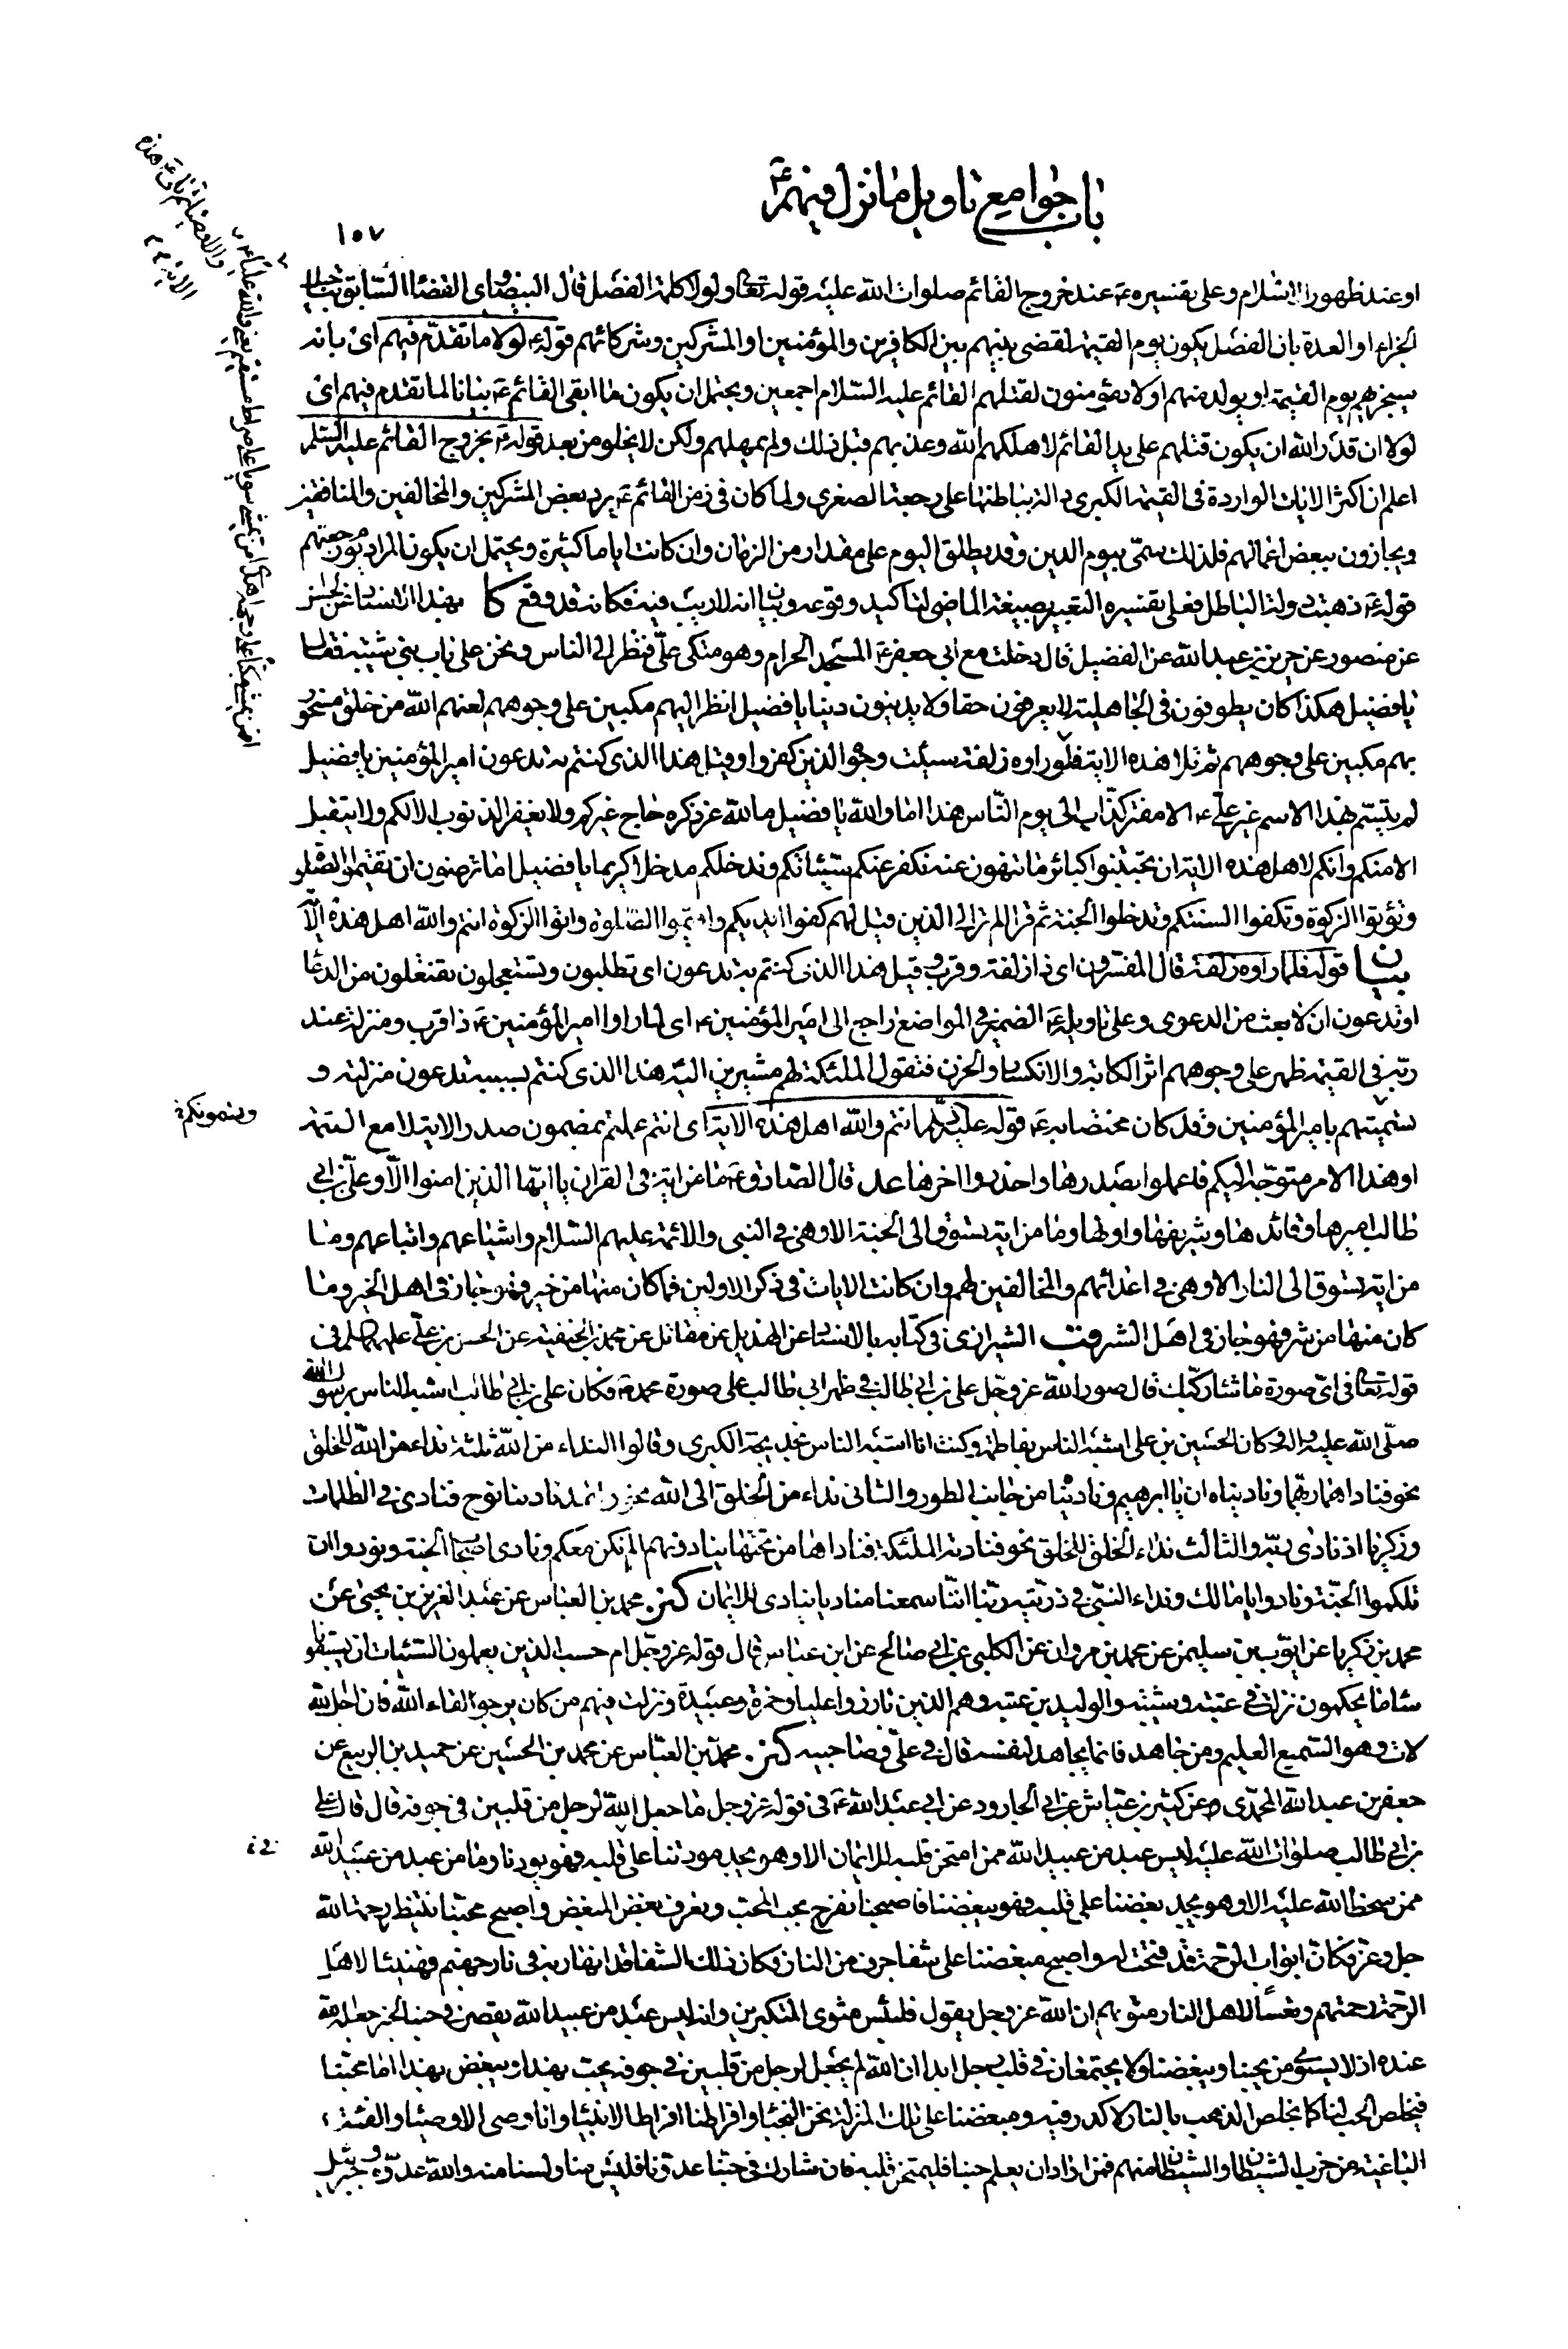 باب جوامع تاويل ما نزل فيهم ع
١٥٧
او عند ظهور الاسلام وعلى تفسيره ع عند خروج القائم صلوات الله عليه قوله تعالى ولولا كلمة الفصل قال البيضاوى اى القضاء السابق بتاجيل
الجزاء او العدة بان الفصل يكون يوم القيمة لقضى بينهم بين الكافرين والمؤمنين او المشركين وشركائهم قوله ع لولا ما تقدم فيهم اى بانه
سيجزيهم يوم القيمة او يولد منهم اولاد مؤمنون لقتلهم القائم عليه السلام اجمعين ويحتمل ان يكون ما ابقى القائم ع بيانا لما تقدم فيهم اى
لولا ان قدر الله ان يكون قتلهم على يد القائم لاهلكهم الله وعذبهم قبل ذلك ولم يمهلهم ولكن لا يخلو من بعد قوله ع بخروج القائم عليه السلم
اعلم ان اكثر الايات الواردة فى القيمة الكبرى دالة بباطنها على رجعة الصغرى ولما كان فى زمن القائم ع يرد بعض المشركين والمخالفين والمنافقين
ويجازون ببعض اعمالهم فلذلك سمى بيوم الدين وقد يطلق اليوم على مقدار من الزمان وان كانت اياما كثيرة ويحتمل ان يكون المراد يوم رجعتهم
قوله ع ذهبت دولة الباطل فعلى تفسيره التعبير بصيغة الماضى لتاكيد وقوعه وبيان انه لا ريب فيه فكانه قد وقع كا بهذا الاسناد عن الحسن
عن منصور عن حريز بن عبد الله عن الفضيل قال دخلت مع ابى جعفر ع المسجد الحرام وهو متكى على فنظر الى الناس ونحن على باب بنى شيبة فقال
يا فضيل هكذا كان يطوفون فى الجاهلية لا يعرفون حقا ولا يدينون دينا يا فضيل انظر اليهم مكبين على وجوههم لعنهم الله من خلق مسخور
بهم مكبين على وجوههم ثم تلا هذه الاية فلما راوه زلفة سيئت وجوه الذين كفروا وقيل هذا الذى كنتم به تدعون امير المؤمنين يا فضيل
لم يتسم بهذا الاسم غير على ع الا مفتر كذاب الى يوم الناس هذا اما والله يا فضيل ما لله عز ذكره حاج غيركم ولا يغفر الذنوب الا لكم ولا يتقبل
الا منكم وانكم لاهل هذه الاية ان تجتنبوا كبائر ما تنهون عنه نكفر عنكم سيئاتكم وندخلكم مدخلا كريما يا فضيل اما ترضون ان تقيموا الصلوة
وتؤتوا الزكوة وتكفوا السنتكم وتدخلوا الجنة ثم قرا الم تر الى الذين قيل لهم كفوا ايديكم واقيموا الصلوة واتوا الزكوة انتم والله اهل هذه الاية
بيان قوله فلما راوه زلفة قال المفسرون اى ذا زلفة وقرب وقيل هذا الذى كنتم به تدعون اى تطلبون وتستعجلون تفتعلون من الدعاء
او تدعون ان لا بعث من الدعوى وعلى تاويله ع الضمير فى المواضع راجع الى امير المؤمنين ع اى لما راوا امير المؤمنين ع ذا قرب ومنزلة عند
ربه فى القيمة ظهر على وجوههم اثر الكابة والانكسار والحزن فتقول الملئكة لهم مشيرين اليه هذا الذى كنتم بسببه تدعون منزلته و
تسميتهم بامير المؤمنين وقد كان مختصا به ع قوله عليه السلم انتم والله اهل هذه الاية اى انتم عملتم بمضمون صدر الاية لا مع التتمة
او هذا الامر متوجه اليكم فاعملوا بصدرها واحذروا اخرها عد قال الصادق ع ما من اية فى القران يا ايها الذين امنوا الا وعلى بن ابى
طالب اميرها وقائدها وشريفها واولها وما من اية تسوق الى الجنة الا وهى فى النبى والائمة عليهم السلام واشياعهم واتباعهم وما
من اية تسوق الى النار الا وهى فى اعدائهم والمخالفين لهم وان كانت الايات فى ذكر الاولين فما كان منها من خير فهو جار فى اهل الخير وما
كان منها من شر فهو جار فى اهل الشر قب الشيرازى فى كتابه بالاسناد عن الهذيل عن مقاتل عن محمد بن الحنفية عن الحسن بن على عليهما السلم فى
قوله تعالى فى اى صورة ما شاء ركبك قال صور الله عز وجل على بن ابى طالب فى ظهر ابى طالب على صورة محمد ص فكان على بن ابى طالب اشبه الناس برسول الله
صلى الله عليه واله وكان الحسين بن على اشبه الناس بفاطمة وكنت انا اشبه الناس بخديجة الكبرى وقالوا النداء من الله ثلثة نداء من الله للخلق
نحو فناداهما ربهما وناديناه ان يا ابرهيم وناديناه من جانب الطور والثانى نداء من الخلق الى الله نحو ولقد نادينا نوح فنادى فى الظلمات
وزكريا اذ نادى ربه والثالث نداء الخلق للخلق نحو فنادته الملئكة فناداها من تحتها ينادونهم الم نكن معكم ونادى اصحاب الجنة ونودوا ان
تلكموا الجنة ونادوا يا مالك ونداء النبى فى ذريته ربنا اننا سمعنا مناديا ينادى للايمان كنز محمد بن العباس عن عبد العزيز بن يحيى عن
محمد بن زكريا عن ايوب بن سليمن عن محمد بن مروان عن الكلبى عن ابى صالح عن ابن عباس قال قوله عز وجل ام حسب الذين يعملون السيئات ان يسبقونا
ساء ما يحكمون نزلت فى عتبة وشيبة والوليد بن عتبة وهم الذين بارزوا عليا وحمزة وعبيدة ونزلت فيهم من كان يرجوا لقاء الله فان اجل الله
لات وهو السميع العليم ومن جاهد فانما يجاهد لنفسه قال فى على وصاحبيه كنز محمد بن العباس عن محمد بن الحسين عن حميد بن الربيع عن
جعفر بن عبد الله المحمدى عن كثير بن عياش عن ابى الجارود عن ابى عبد الله ع فى قوله عز وجل ما جعل الله لرجل من قلبين فى جوفه قال قال على
بن ابى طالب صلوات الله عليه ليس عبد من عبيد الله ممن امتحن قلبه للايمان الا وهو يجد مودتنا على قلبه فهو يودنا وما من عبد من عبيد الله
ممن سخط الله عليه الا وهو يجد بغضنا على قلبه فهو يبغضنا فاصبحنا نفرح بحب المحب ونعرف بغض المبغض واصبح محبنا ينتظر رحمة الله
جل وعز فكان ابواب الرحمة قد فتحت له واصبح مبغضنا على شفا جرف من النار فكان ذلك الشفا قد انهار به فى نار جهنم فهنيئا لاهل
الرحمة رحمتهم وتعسا لاهل النار مثويهم ان الله عز وجل يقول فلبئس مثوى المتكبرين وانه ليس عبد من عبيد الله يقصر فى حبنا لخير جعله الله
عنده اذ لا يستوى من يحبنا ويبغضنا ولا يجتمعان فى قلب رجل ابدا ان الله لم يجعل لرجل من قلبين فى جوفه يحب بهذا ويبغض بهذا اما محبنا
فيخلص الحب لنا كما يخلص الذهب بالنار لا كدر فيه ومبغضنا على تلك المنزلة نحن النجباء وافراطنا افراط الانبياء وانا وصى الاوصياء والفئة
الباغية من حزب الشيطان والشيطان منهم فمن اراد ان يعلم حبنا فليمتحن قلبه فان شارك فى حبنا عدونا فليس منا ولسنا منه والله عدوه وجبرئيل
افمن يمشى مكبا على وجهه اهدى امن يمشى سويا على صراط مستقيم يعنى والله عليا ع
والاوصياء ع
ويسمونكم خ